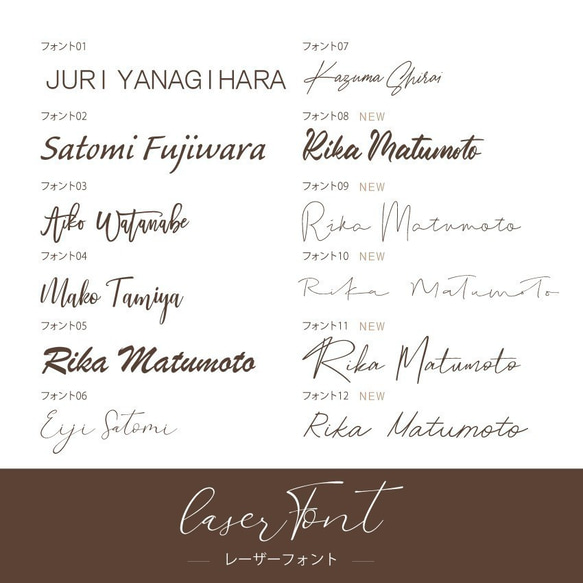 フォント01
JURI YANAGIHARA
フォント02
Satomi Fujiwara
フォント03
Aiko Watanabe
フォント04
Mako Tamiya
フォント05
Rika Matumoto
フォント06
Eiji Satomi
フォント07
Kazuma Shirai
フォント08 NEW
Rika Matumoto
フォント09 NEW
Rika Matumoto
フォント10 NEW
Rika Matumoto
フォント11 NEW
Rika Matumoto
フォント12 NEW
Rika Matumoto
laser Font
レーザーフォント